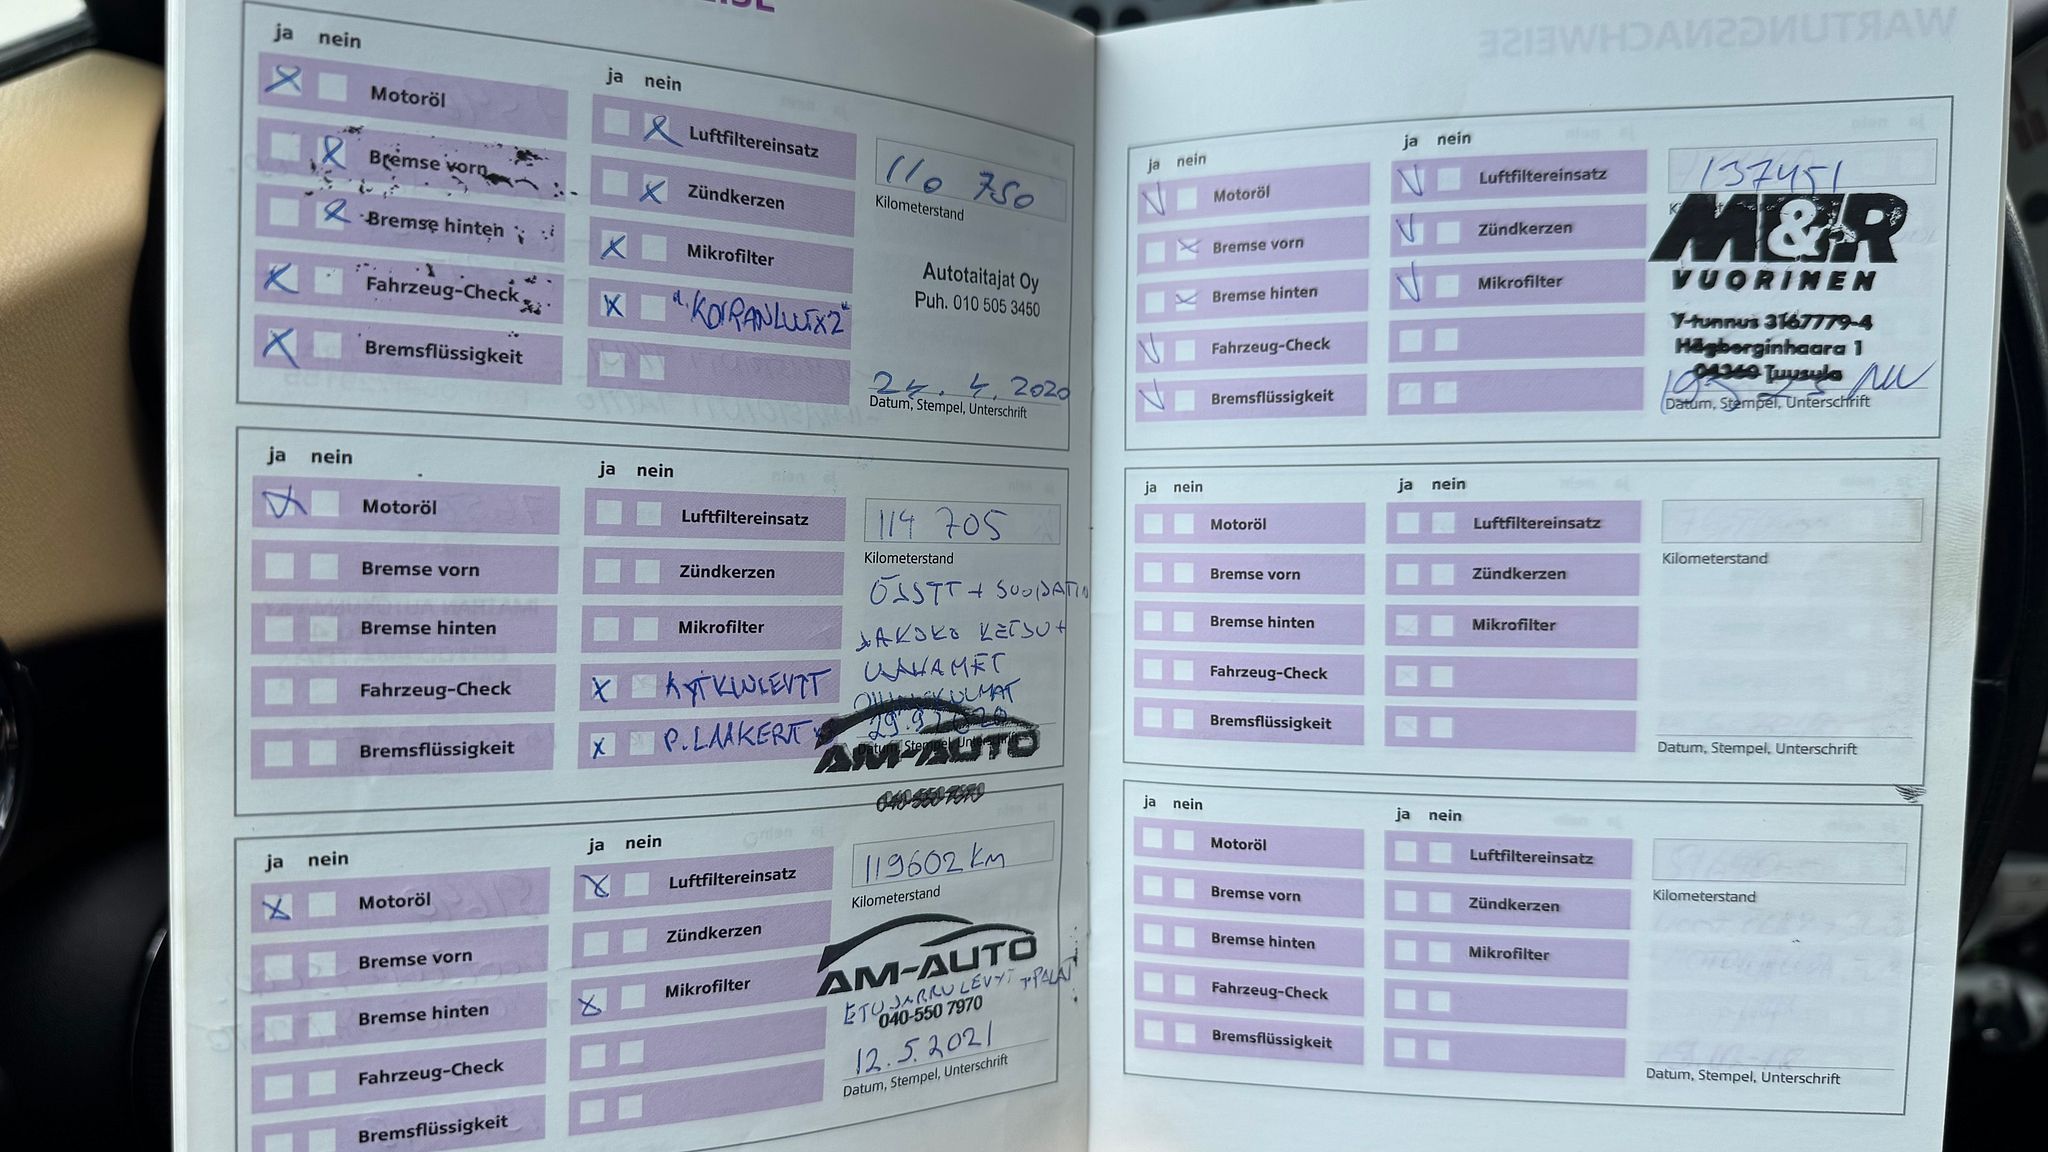 ja nein
Motoröl
Bremse vorn
Bremse hinten
Fahrzeug-Check
Bremsflüssigkeit
ja nein
Luftfiltereinsatz
Zündkerzen
Mikrofilter
"KOIRANLUUTX2"
110 750
Kilometerstand
Autotaitajat Oy
Puh. 010 505 3450
24.4.2020
Datum, Stempel, Unterschrift
ja nein
Motoröl
Bremse vorn
Bremse hinten
Fahrzeug-Check
Bremsflüssigkeit
ja nein
Luftfiltereinsatz
Zündkerzen
Mikrofilter
KYTKINLEVYT
P.LAAKERIT
114 705
Kilometerstand
ÖLJYT + SUODATIN
JAKOKO KETJU +
VANAMET
OHJAUSKULMAT
29.9.2020
Datum, Stempel, Unterschrift
AM-AUTO
040-550 7970
ja nein
Motoröl
Bremse vorn
Bremse hinten
Fahrzeug-Check
Bremsflüssigkeit
ja nein
Luftfiltereinsatz
Zündkerzen
Mikrofilter
119602 km
Kilometerstand
AM-AUTO
ETUJARRULEVYT + PALAT
040-550 7970
12.5.2021
Datum, Stempel, Unterschrift
WARTUNGSNACHWEISE
ja nein
Motoröl
Bremse vorn
Bremse hinten
Fahrzeug-Check
Bremsflüssigkeit
ja nein
Luftfiltereinsatz
Zündkerzen
Mikrofilter
137451
M&R
VUORINEN
Y-tunnus 3167779-4
Högberginhaara 1
04360 Tuusula
Datum, Stempel, Unterschrift
ja nein
Motoröl
Bremse vorn
Bremse hinten
Fahrzeug-Check
Bremsflüssigkeit
ja nein
Luftfiltereinsatz
Zündkerzen
Mikrofilter
Kilometerstand
Datum, Stempel, Unterschrift
ja nein
Motoröl
Bremse vorn
Bremse hinten
Fahrzeug-Check
Bremsflüssigkeit
ja nein
Luftfiltereinsatz
Zündkerzen
Mikrofilter
Kilometerstand
Datum, Stempel, Unterschrift